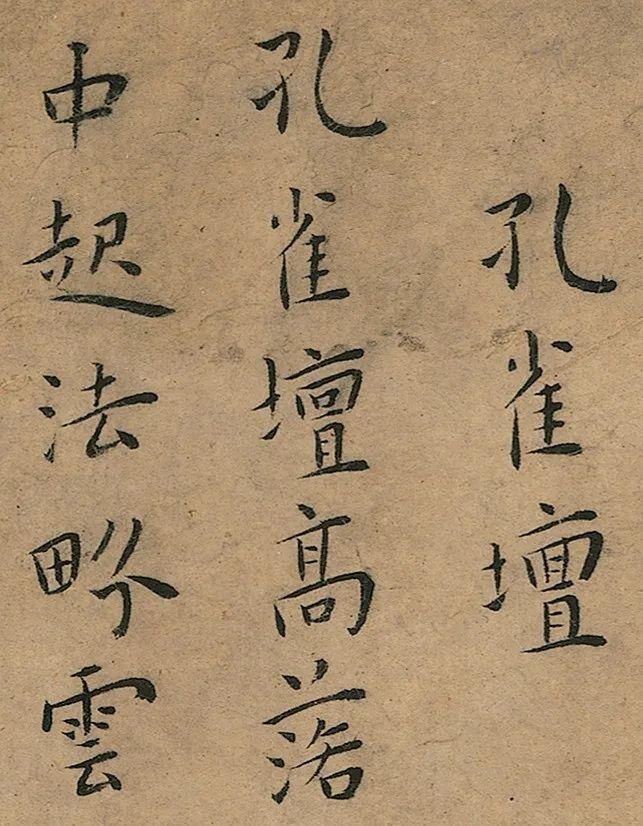 孔雀壇
孔雀壇高落
中起法畍雲